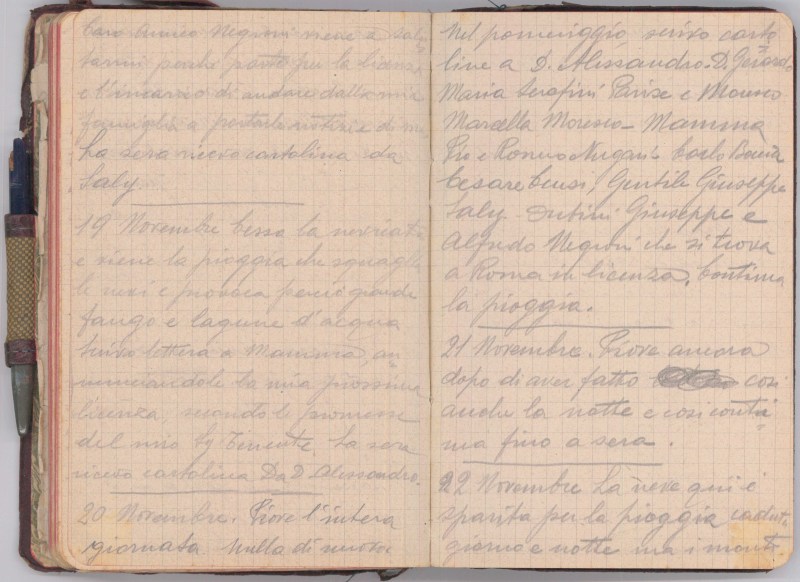 Caro Amico Negroni viene a salu=
tarmi perché parte per la licenza
e l'incarico di andare dalla mia
famiglia a portarle notizie di me
La sera ricevo cartolina da
Saly.
19 Novembre Cessa la nevicata
e viene la pioggia che squaglia
le nevi e provoca perciò grande
fango e lagune d'acqua
Scrivo lettera a Mamma, an=
nunciandole la mia prossima
licenza, secondo le promesse
del mio Sg Tenente. La sera
ricevo cartolina Da D. Alessandro.
20 Novembre. Piove l'intera
giornata. Nulla di nuovo.
Nel pomeriggio scrivo carto=
line a D. Alessandro - D. Gerardo
Maria Serafini e Moresco
Marcella Moresco - Mamma
Pio e Romeo Carlo
Cesare Gentile Giuseppe
Saly - Giuseppe e
Alfredo Negroni che si trova
a Roma in licenza. Continua
la pioggia.
21 Novembre. Piove ancora
dopo di aver fatto così
anche la notte e così conti=
nua fino a sera.
22 Novembre La neve qui è
sparita per la pioggia caduta
giorno e notte ma i monti